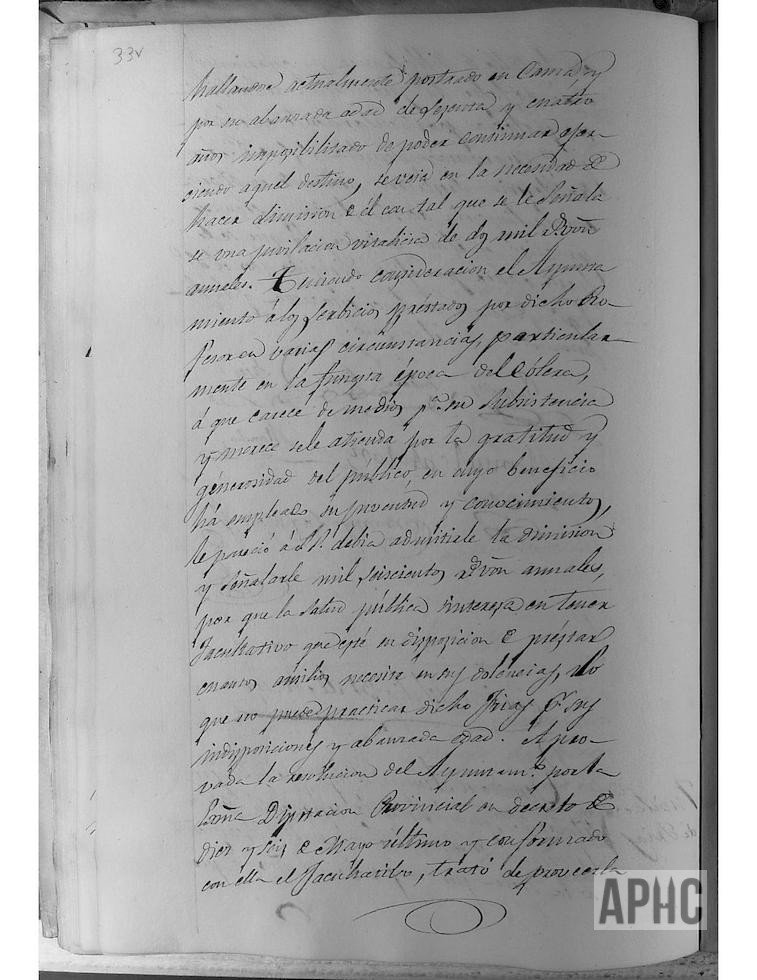 33v
hallandose actualmente postrado en Cama, y
por su abanzada edad de sesenta y cuatro
años imposibilitado de poder continuar ejer-
ciendo aquel destino, se veia en la necesidad de
hacer dimision de él con tal que se le Señala
se una jubilacion vitalicia de dos mil rs. von
annales. Teniendo consideracion el Ayunta
miento á los serbicios préstados por dicho Pro-
fesor en varias circunstancias, particular-
mente en la funesta época del Cólera,
á que carece de medios pa. su subsistencia
y merece sele atienda por la gratitud y
génerosidad del público, en cuyo beneficio
há empleado su juventud y conocimientos,
le pareció á S.S. debia admitirle la dimision
y Señalarle mil seiscientos rs. von annales,
por que la salud pública interesa en tener
facultativo que esté en disposicion de préstar
cuantos ausilios necesite en sus dolencias, lo
que no puede practicar dicho Frias pr. sus
indisposiciones y abanzada edad. Apro-
vada la resolucion del Ayuntamto. por la
Exma Diputacion Provincial en decreto de
diez y seis de Mayo último y conformado
con ella el Facultativo, trató de proveerla
APHC